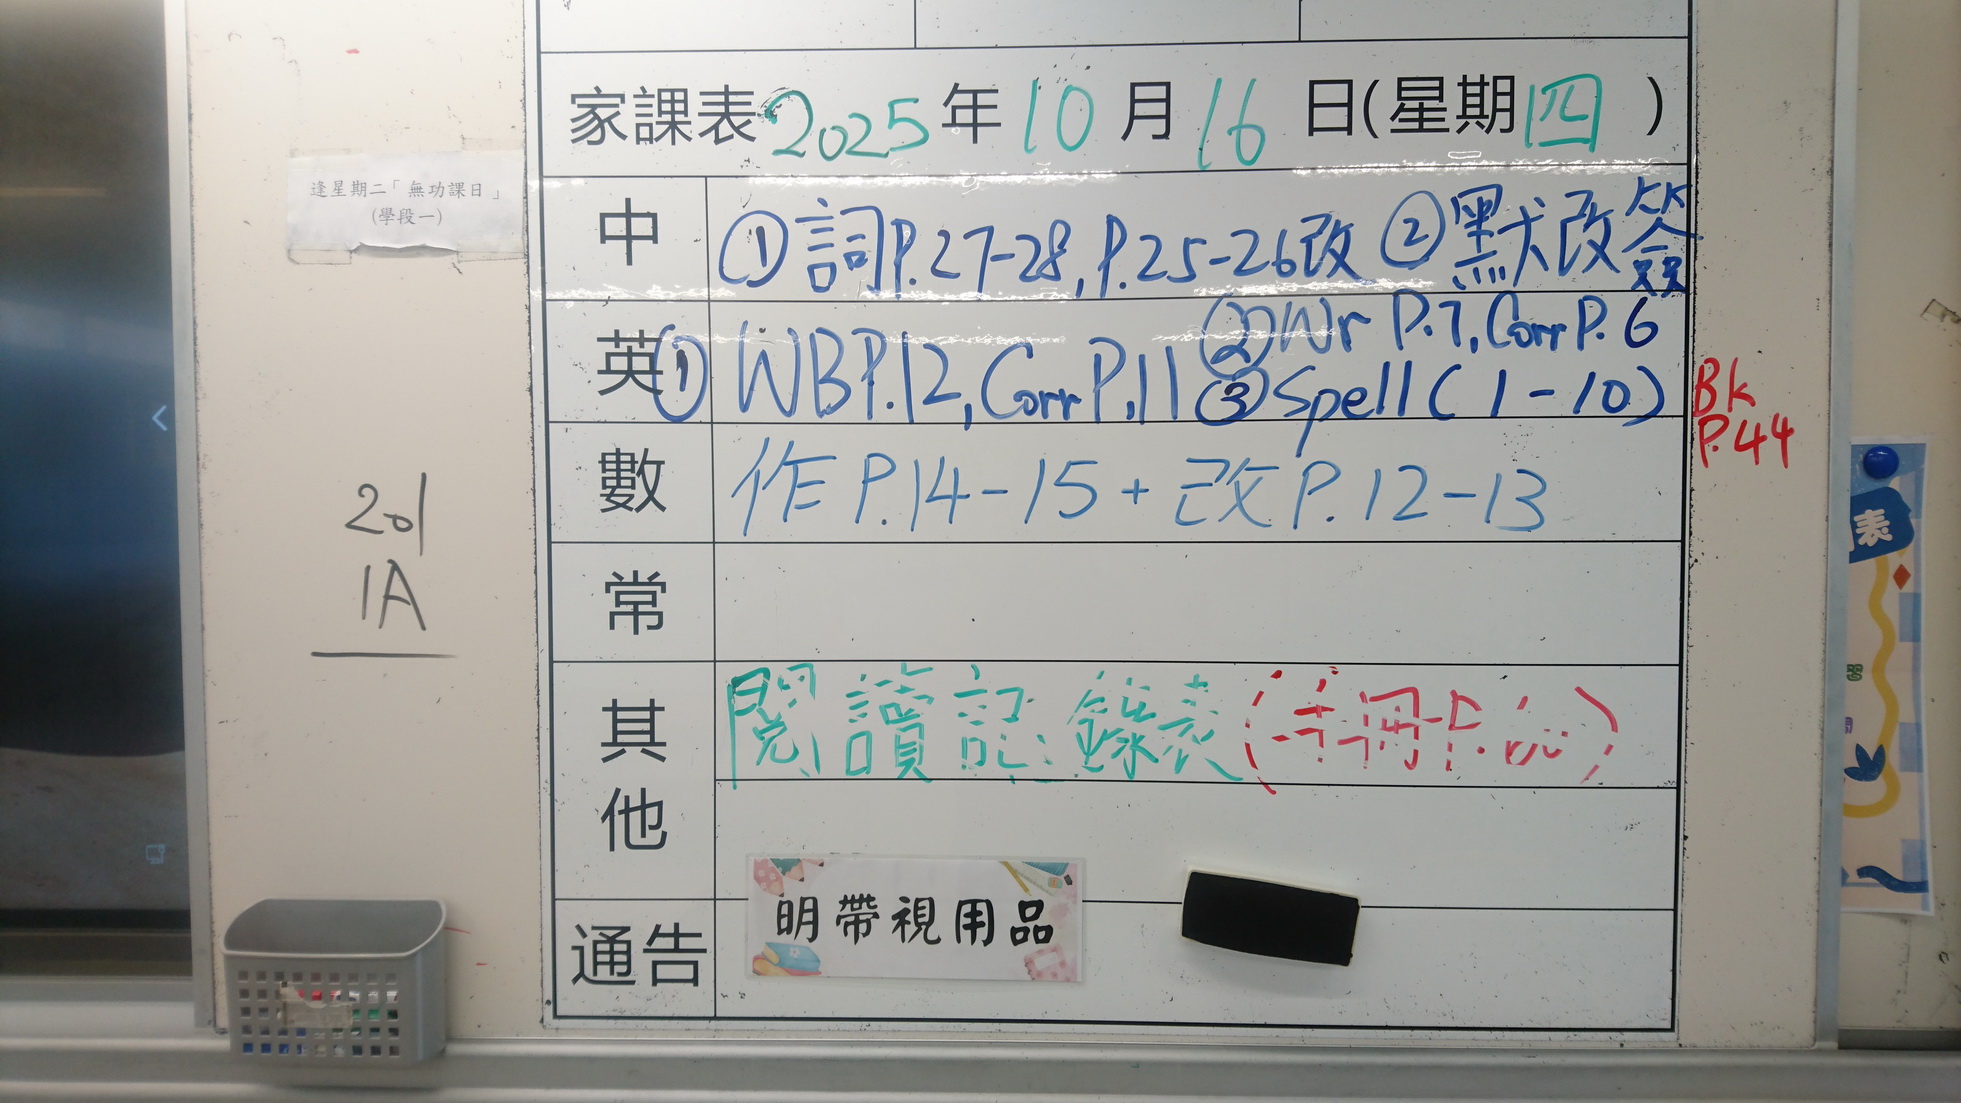 家課表2025年10月16日(星期四)
逢星期二「無功課日」
(學段一)
中 ①詞P.27-28,P.25-26改 ②默改簽
英 ① WB P.12, Corr P.11 ② Wr P.7, Corr P.6
③ Spell (1-10)
Bk
P.44
數 作 P.14-15 + 改 P.12-13
201
1A
常
其他 閱讀記錄表(手冊P.)
明帶視用品
通告
表